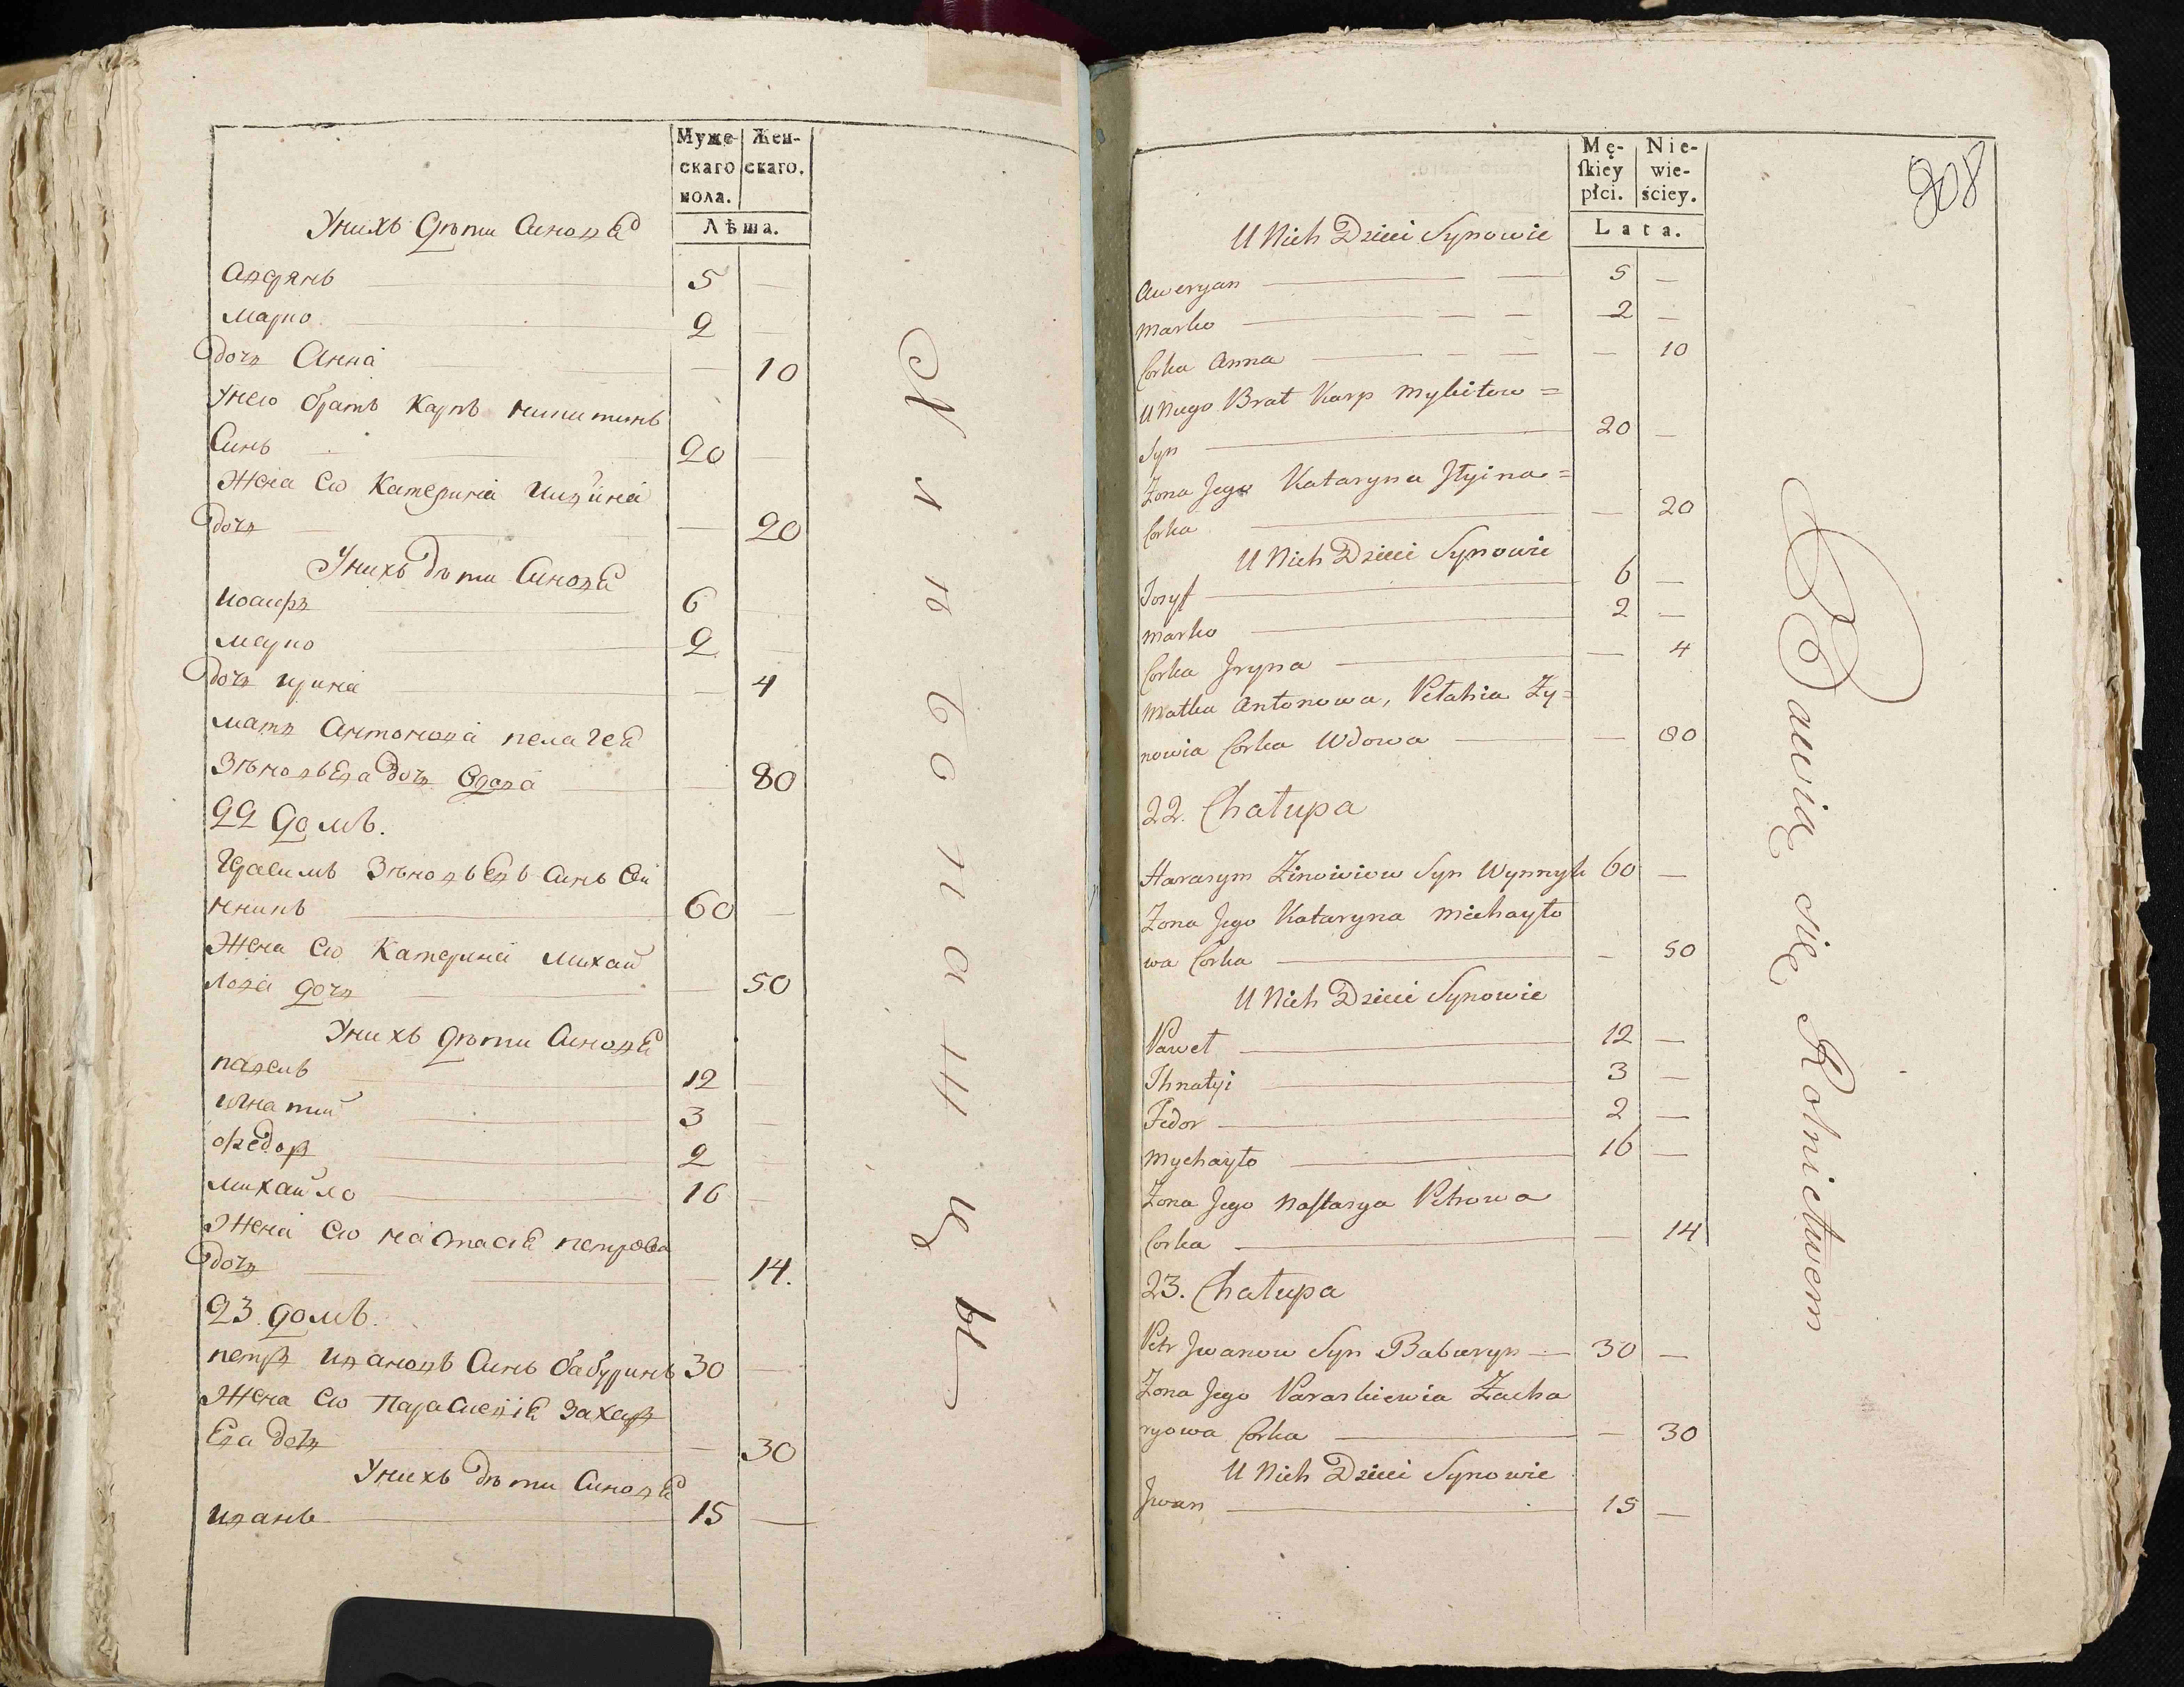 Муже-
скаго
пола.
Жен-
скаго.
Лѣта.
У нихъ дѣти синовѣ
Авдянъ 5 —
Марко 2 —
дочь Анна — 10
У него братъ Карпъ Никитинъ
Синъ 20 —
Жена его Катерина Илина
дочь — 20
У нихъ дѣти синовѣ
Иосифъ 6
Марко 2 —
дочь Ирина — 4
Мать Антонова Пелагея
Зѣновьева дочь вдова — 80
22 домъ.
Герасимъ Зѣновьевъ синъ Ви
нникъ 60 —
Жена его Катерина Михай
лова дочь — 50
У нихъ дѣти синовѣ
Павелъ 12
Игнатий 3 —
Федоръ 2
Михайло 16 —
Жена его Настасѣя Петрова
дочь — 14.
23. домъ.
Петръ Ивановъ синъ Бабуринъ 30 —
Жена его Парасковія Захарь
ева дочь — 30
У нихъ дѣти синовѣ
Иванъ 15 —
Хлѣбопашцы
Mę-
ſkiey
płci.
Nie-
wie-
ściey.
Lata.
808
U Nich Dzieci Synowie
Aweryan 5 —
Marko 2 —
Corka Anna — 10
U Niego Brat Karp Mykitow =
Syn 20 —
Zona Jego Kataryna Jłyina =
Corka — 20
U Nich Dzieci Synowie
Iosyf 6 —
Marko 2 —
Corka Jryna — 4
Matka Antonowa, Pełahia Zy=
nowia Corka Wdowa — 80
22. Chałupa
Harasym Zinowiow Syn Wynnyk 60 —
Zona Jego Kataryna Michayło
wa Corka — 50
U Nich Dzieci Synowie
Paweł 12 —
Ihnatyi 3 —
Fedor 2 —
Mychayło 16 —
Zona Jego Naſtasya Petrowa
Corka — 14
23. Chałupa
Petr Jwanow Syn Baburyn — 30 —
Zona Jego Paraskiewia Zacha
ryowa Corka — 30
U Nich Dzieci Synowie
Jwan 15 —
Bawią się Rolnictwem